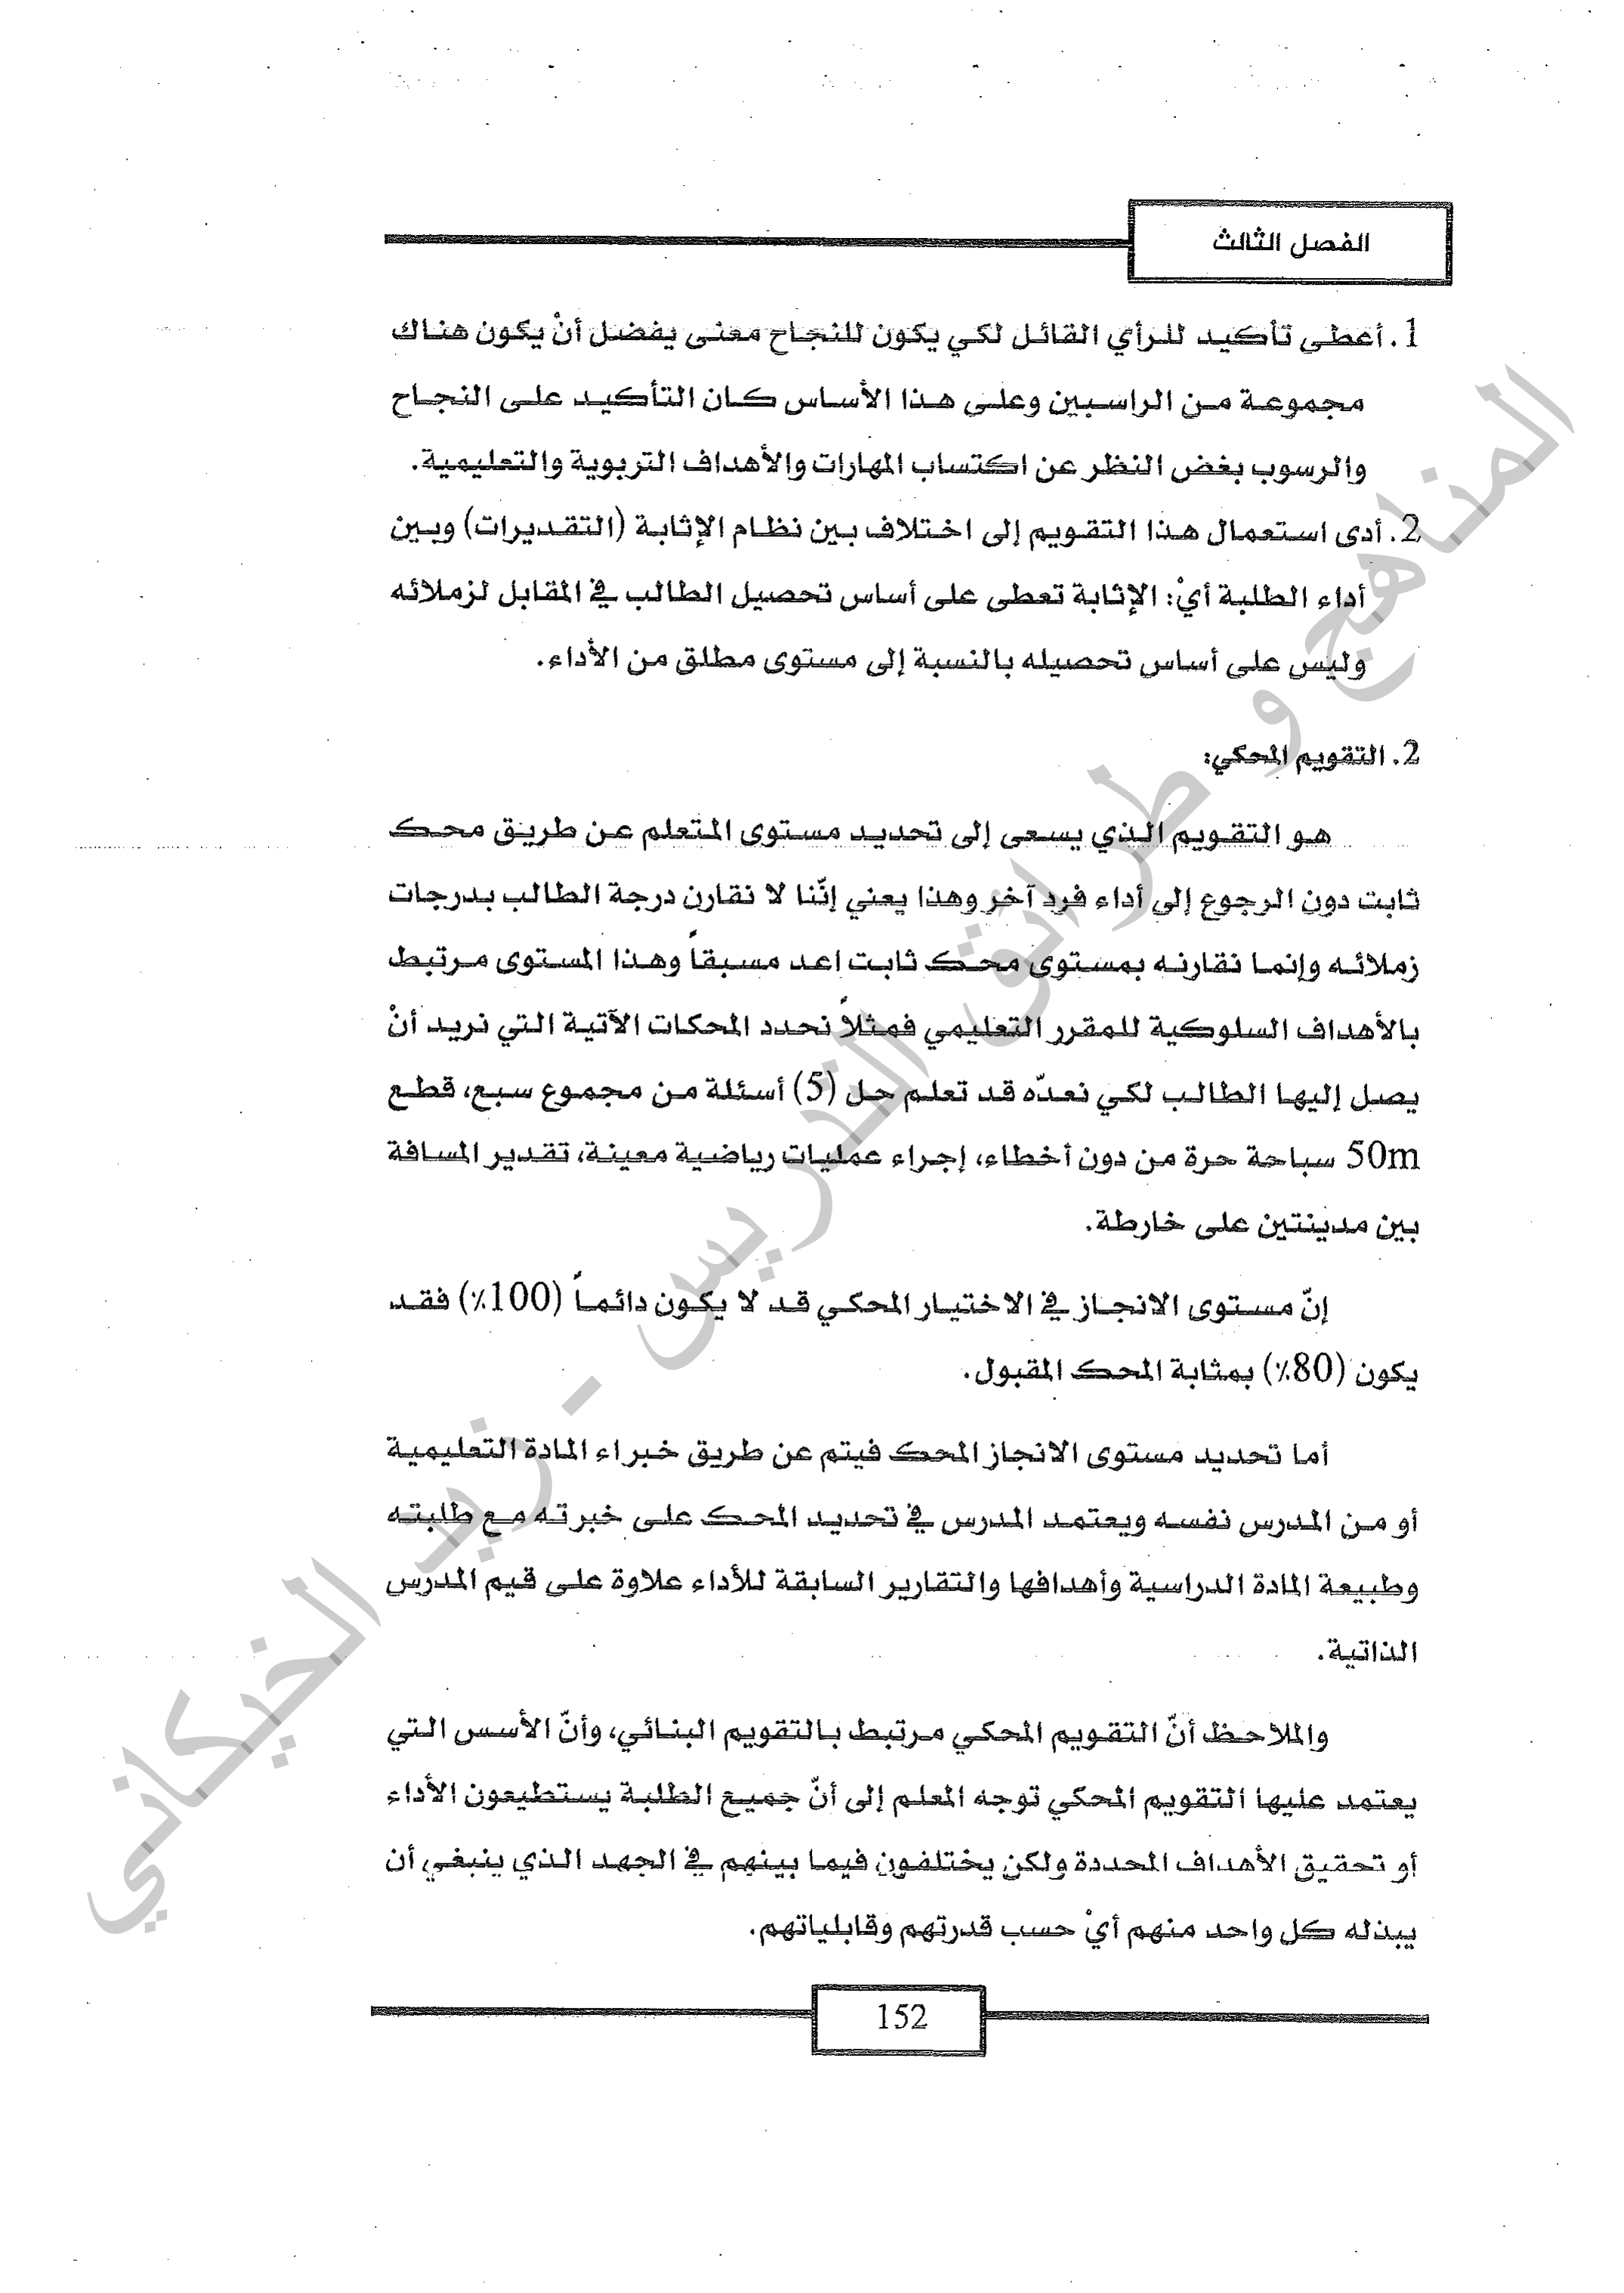 الفصل الثالث
1. أعطى تأكيد للرأي القائل لكي يكون للنجاح معنى يفضل أنْ يكون هناك
مجموعة من الراسبين وعلى هذا الأساس كان التأكيد على النجاح
والرسوب بغض النظر عن اكتساب المهارات والأهداف التربوية والتعليمية.
2. أدى استعمال هذا التقويم إلى اختلاف بين نظام الإثابة (التقديرات) وبين
أداء الطلبة أيْ: الإثابة تعطى على أساس تحصيل الطالب في المقابل لزملائه
وليس على أساس تحصيله بالنسبة إلى مستوى مطلق من الأداء.
2. التقويم المحكي:
هو التقويم الذي يسعى إلى تحديد مستوى المتعلم عن طريق محك
ثابت دون الرجوع إلى أداء فرد آخر وهذا يعني إنّنا لا نقارن درجة الطالب بدرجات
زملائه وإنما نقارنه بمستوى محك ثابت اعد مسبقاً وهذا المستوى مرتبط
بالأهداف السلوكية للمقرر التعليمي فمثلاً نحدد المحكات الآتية التي نريد أنْ
يصل إليها الطالب لكي نعدّه قد تعلم حل (5) أسئلة من مجموع سبع، قطع
50m سباحة حرة من دون أخطاء، إجراء عمليات رياضية معينة، تقدير المسافة
بين مدينتين على خارطة.
إنّ مستوى الانجاز في الاختيار المحكي قد لا يكون دائماً (100٪) فقد
يكون (80٪) بمثابة المحك المقبول.
أما تحديد مستوى الانجاز المحك فيتم عن طريق خبراء المادة التعليمية
أو من المدرس نفسه ويعتمد المدرس في تحديد المحك على خبرته مع طلبته
وطبيعة المادة الدراسية وأهدافها والتقارير السابقة للأداء علاوة على قيم المدرس
الذاتية.
والملاحظ أنّ التقويم المحكي مرتبط بالتقويم البنائي، وأنّ الأسس التي
يعتمد عليها التقويم المحكي توجه المعلم إلى أنّ جميع الطلبة يستطيعون الأداء
أو تحقيق الأهداف المحددة ولكن يختلفون فيما بينهم في الجهد الذي ينبغي أن
يبذله كل واحد منهم أيْ حسب قدرتهم وقابلياتهم.
152
المناهج و طرائق التدريس - زيد الخيكاني